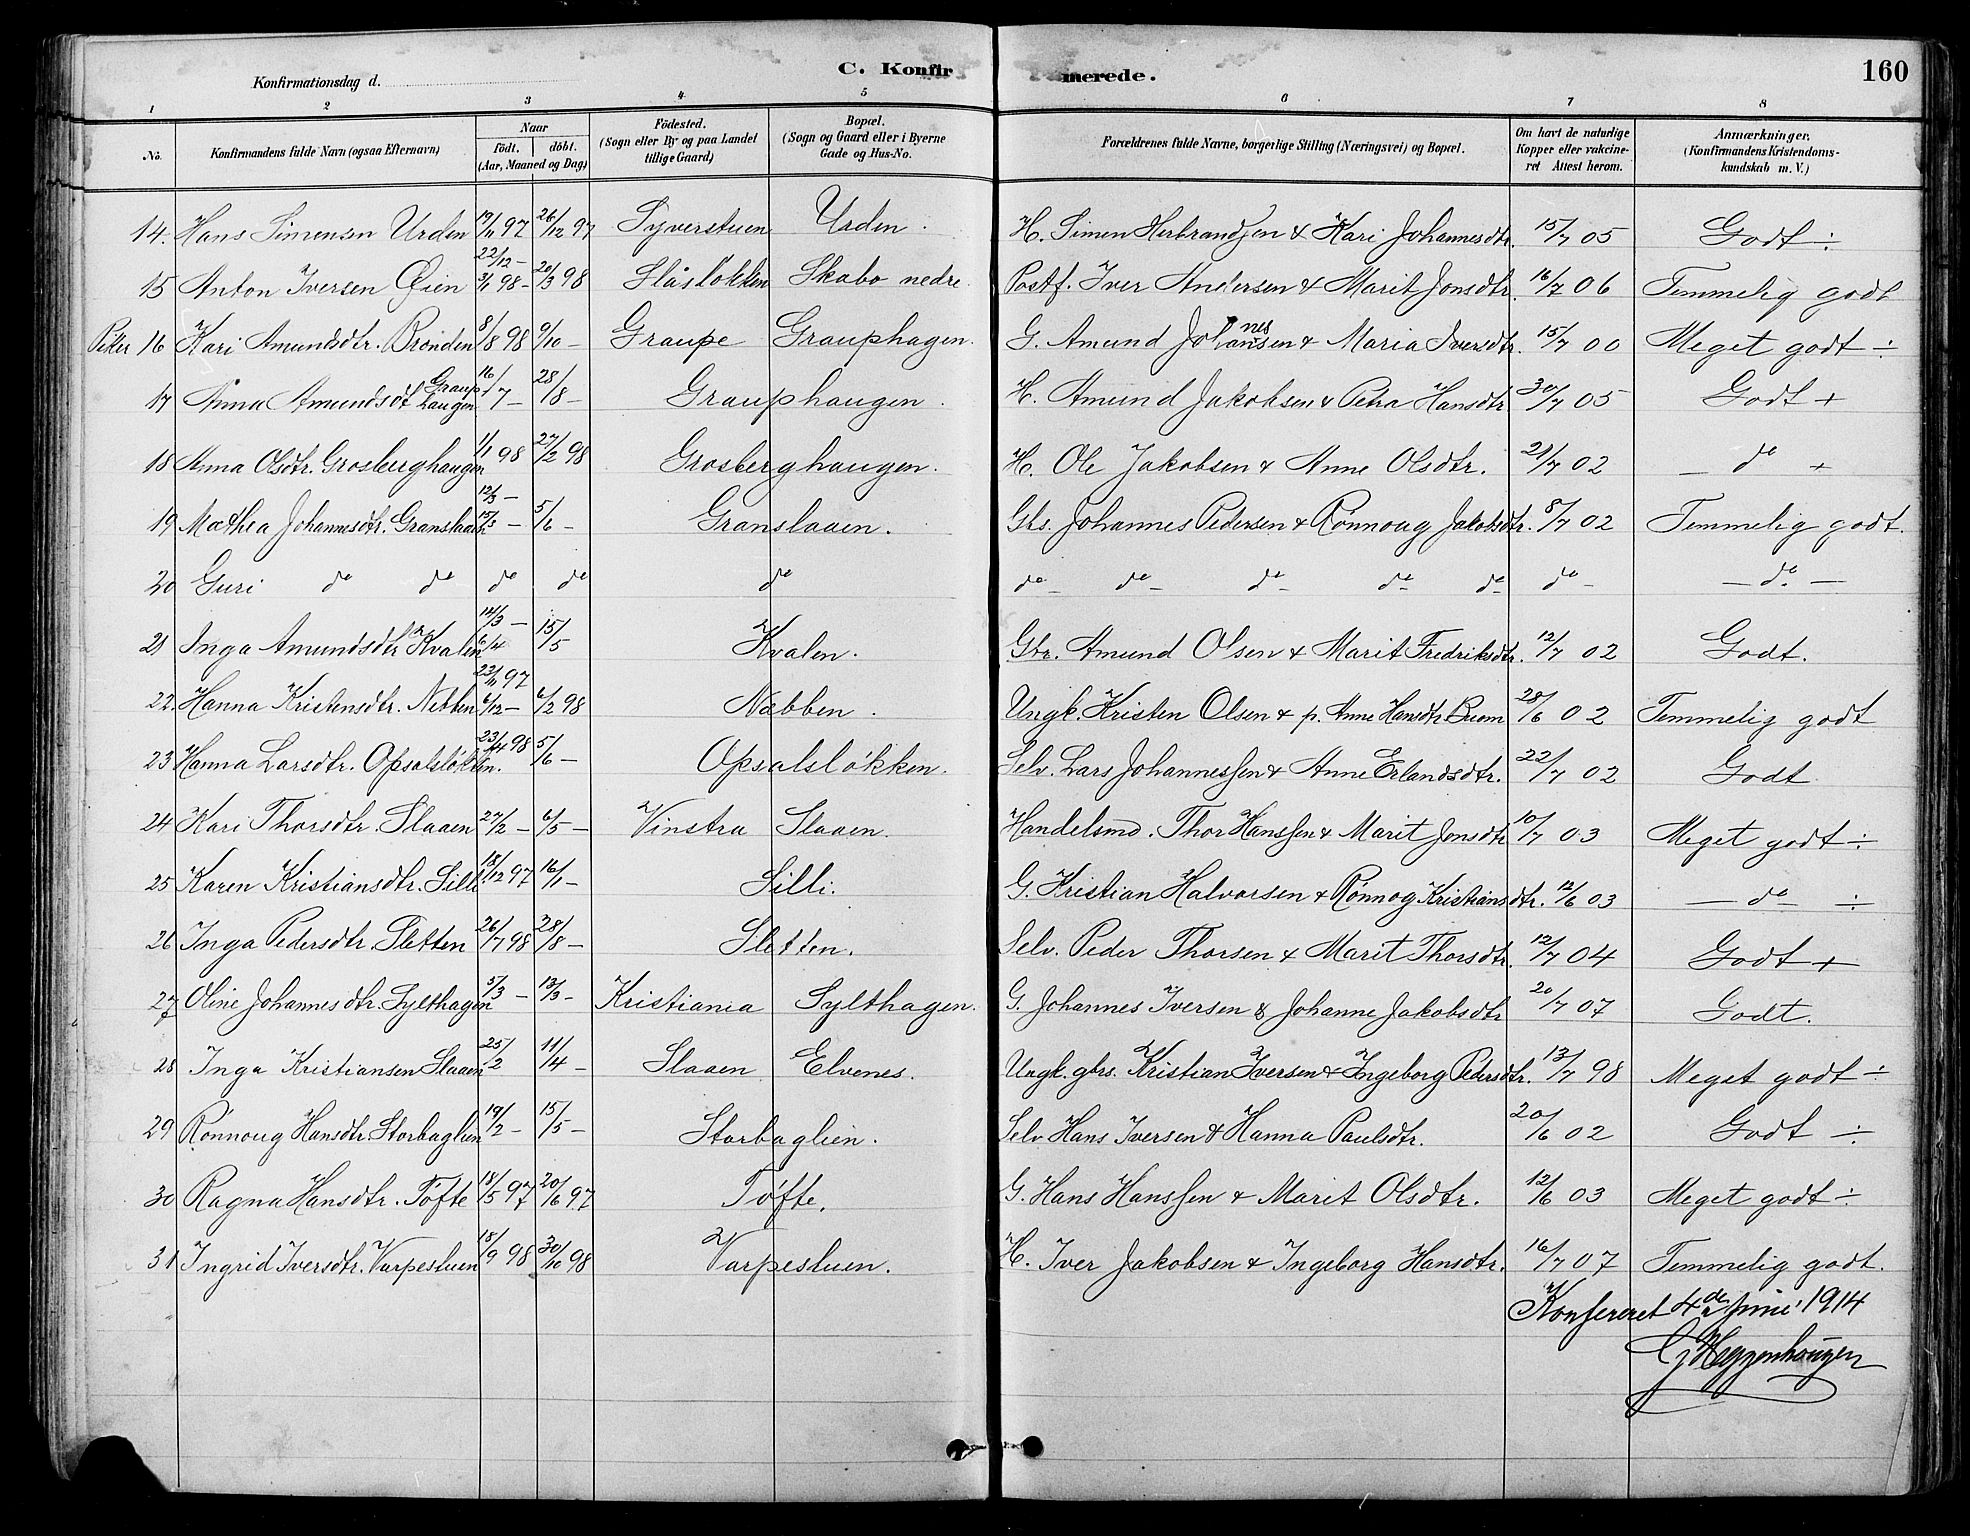 Konfirmationsdag d. C. Konfir merede. 160
1 2 3 4 5 6 7 8
No. Konfirmandens fulde Navn (ogsaa Efternavn) Naar födt. döbt. (Aar, Maaned og Dag) Födested. (Sogn eller By og paa Landet tillige Gaard) Bopæl. (Sogn og Gaard eller i Byerne Gade og Hus-No. Forældrenes fulde Navne, borgerlige Stilling (Næringsvei) og Bopæl. Om havt de naturlige Kopper eller vakcineret Attest herom. Anmærkninger. (Konfirmandens Kristendomskundskab m. V.)
14. Hans Simensen Urden 19/11 97 26/12 97 Syverstuen Urden. H. Simen Herbrandsen & Kari Johannesdtr. 15/7 05 Godt ÷
22/12 –
15 Anton Iversen Øien 3/1 98 – 20/3 98 Slåsløkken Skabo nedre. Postf. Iver Andersen & Marit Jonsdtr. 16/7 06 Temmelig godt
16 Kari Amundsdtr. Brönden 8/8 98 9/10 – Graupe Grauphagen. G. Amund Johansen nes & Maria Iversdtr. 15/7 00 Meget godt ÷
17 Anna Amundsdt Grauphaugen 16/7 – 28/8 – Grauphaugen. H. Amund Jakobsen & Petra Hansdtr 30/7 05 Godt +
18 Anna Olsdtr. Grosberghaugen 1/1 98 27/2 98 Grosberghaugen. H. Ole Jakobsen & Anne Olsdtr. 21/7 02 – do +
12/3 –
19 Mathea Johannesdtr. Granslaaen 15/3 – 5/6 – Granslaaen. Gbs. Johannes Pedersen & Rønnoug Jakobsdtr. 8/7 02 Temmelig godt.
20 Guri do do do do do do – do – do – do – do – do – – do. –
14/3 –
21 Inga Amundsdtr Kvalen 6/4 15/5 Kvalen. Gbr. Amund Olsen & Marit Fredriksdtr. 12/7 02 Godt.
22/11 97
22. Hanna Kristensdtr. Nebben 6/12 – 6/2 98 Næbben. Ungk. Kristen Olsen & p. Anne Hansdtr. Bræm 28/6 02 Temmelig godt
23 Hanna Larsdtr. Opsalsløkken. 23/4 98 5/6 – Opsalsløkken. Selv. Lars Johannessen & Anne Erlandsdtr. 22/7 02 Godt
24 Kari Thorsdtr. Slaaen 27/2 – 6/5 – Vinstra Slaaen. Handelsmd. Thor Hanssen & Marit Jonsdtr 10/7 03 Meget godt ÷
25 Karen Kristiansdtr. Silli 18/12 97 16/1 – Silli. G. Kristian Halvorsen & Rønnog Kristiansdtr. 12/6 03 – do – ÷
26 Inga Pedersdtr. Sletten 26/7 98 28/8 – Sletten. Selv. Peder Thorsen & Marit Thorsdtr. 12/7 04 Godt +
27 Oline Johannesdtr. Sylthagen 5/3 – 13/3 – Kristiania Sylthagen. G. Johannes Iversen & Johanne Jakobsdtr 20/7 07 Godt.
28 Inga Kristiansen Slaaen 25/2 11/4 – Slaaen Elvenes. Ungk. gbrs. Kristian Iversen & Ingeborg Pedersdtr. 13/7 98 Meget godt ÷
29 Rønnoug Hansdtr. Storbaglien 19/2 – 15/5 – Storbaglien. Selv Hans Iversen & Hanna Paulsdtr. 20/6 02 Godt ÷
30 Ragna Hansdtr. Tøfte 18/5 97 20/6 97 Tøfte. G. Hans Hanssen & Marit Olsdtr. 12/6 03 Meget godt ÷
31 Ingrid Iversdtr. Varpestuen 18/9 98 30/10 98 Varpestuen. H. Iver Jakobsen & Ingeborg Hansdtr. 16/7 07 Temmelig godt.
Konfereret 4de juni 1914
G Heggenhougen